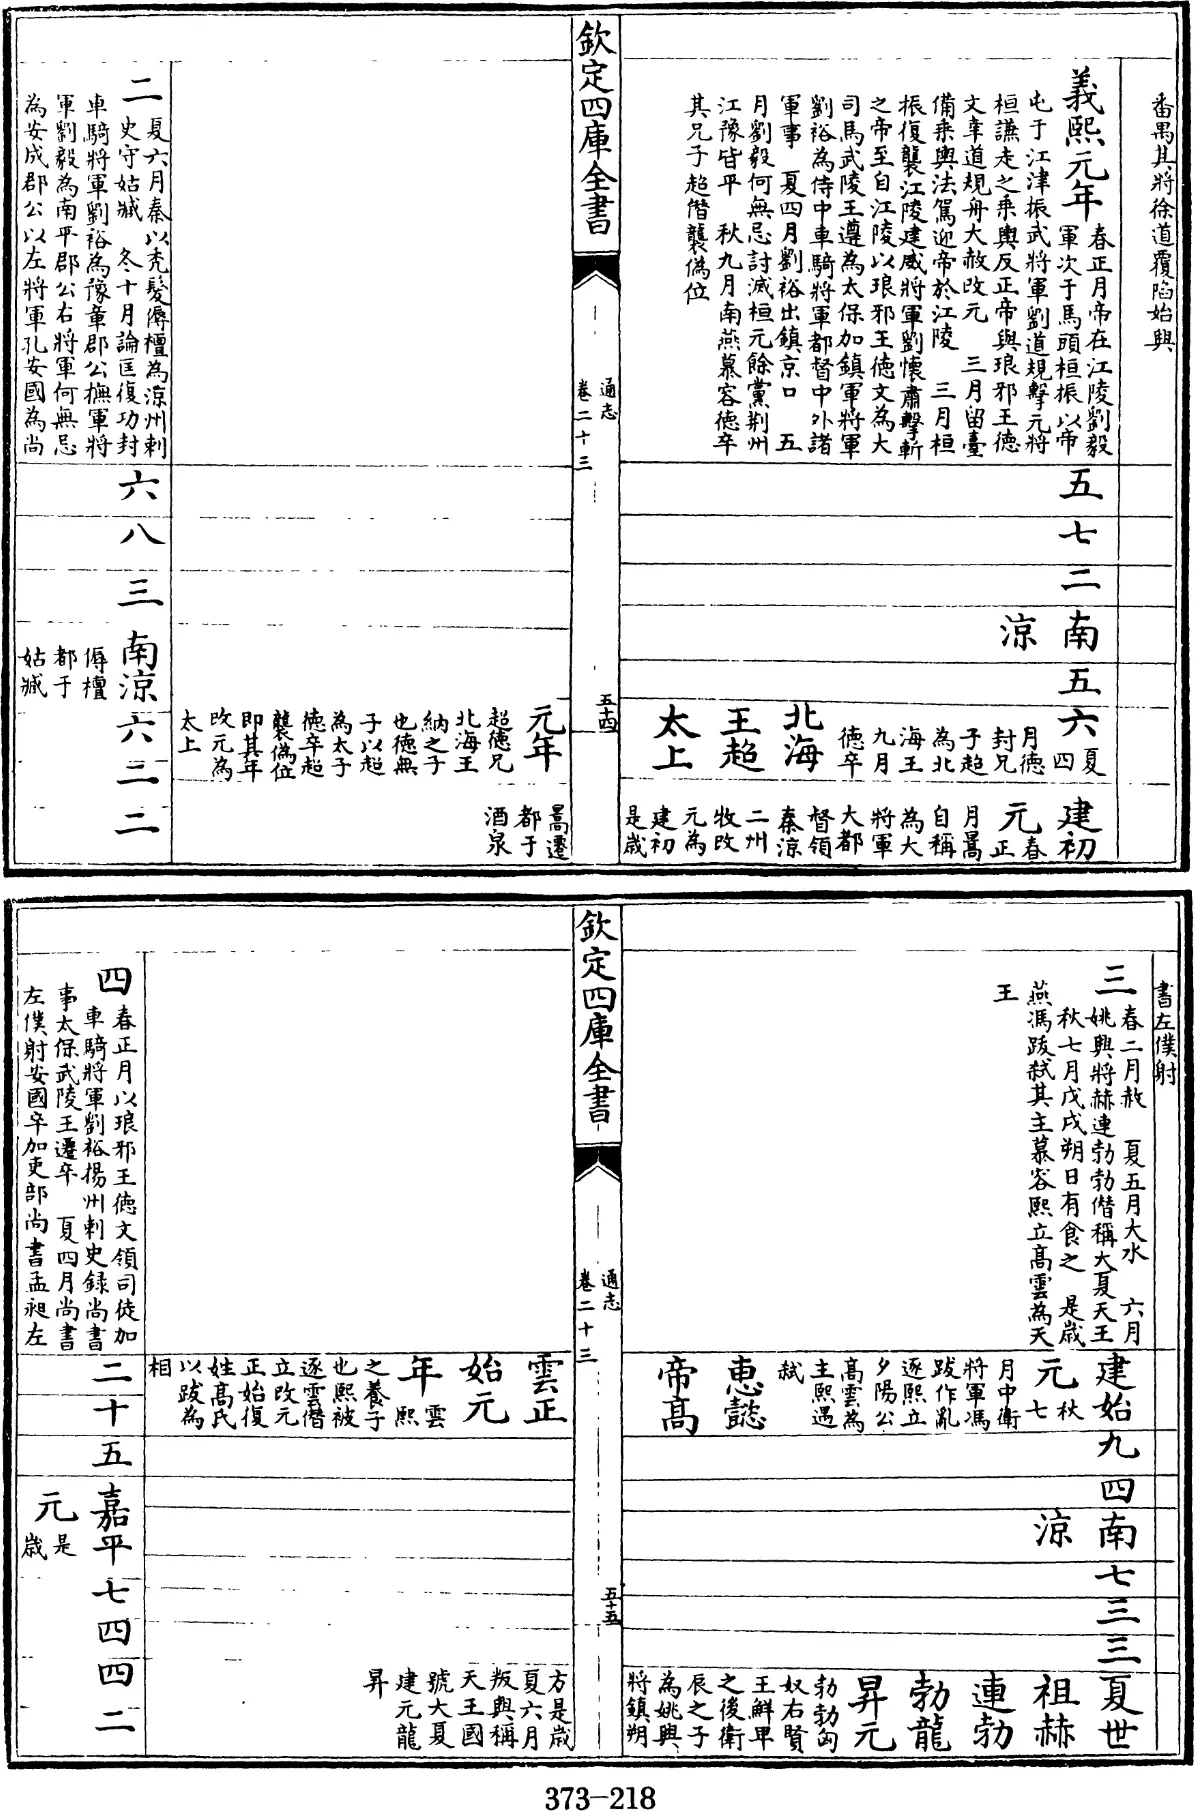 番禺其將徐道覆陷始興
義熙元年
春正月帝在江陵劉毅
軍次于馬頭桓振以帝
屯于江津振武將軍劉道規擊元將
桓謙走之乗輿反正帝與琅邪王徳
文幸道規舟大赦改元 三月留臺
備乗輿法駕迎帝於江陵 三月桓
振復襲江陵建威將軍劉懷肅擊斬
之帝至自江陵以琅邪王徳文為大
司馬武陵王遵為太保加鎮軍將軍
劉裕為侍中車騎將軍都督中外諸
軍事 夏四月劉裕出鎮京口 五
月劉毅何無忌討滅桓元餘黨荆州
江豫皆平 秋九月南燕慕容徳卒
其兄子超僭襲偽位
五
七
二
南
涼
五
六
夏
四
月徳
封兄
子超
為北
海王
九月
徳卒
北海
王超
太上
建初
元
春
正
月暠
自稱
為大
將軍
大都
督領
秦涼
二州
牧改
元為
建初
是歲
欽定四庫全書
通志
卷二十三
五十四
元年
超徳兄
北海王
納之子
也徳無
子以超
為太子
徳卒超
襲偽位
即其年
改元為
太上
暠遷
都于
酒泉
二
夏六月秦以秃髮傉檀為涼州刺
史守姑臧 冬十月論匡復功封
車騎將軍劉裕為豫章郡公撫軍將
軍劉毅為南平郡公右將軍何無忌
為安成郡公以左將軍孔安國為尚
六
八
三
南涼
傉檀
都于
姑臧
六
二
二
書左僕射
三
春二月赦 夏五月大水 六月
姚興將赫連勃勃僭稱大夏天王
秋七月戊戌朔日有食之 是歲
燕馮跋弑其主慕容熙立高雲為天
王
建始
元
秋
七
月中衛
將軍馮
跋作亂
逐熙立
夕陽公
高雲為
主熙遇
弑
惠懿
帝高
九
四
南
涼
七
三
三
夏世
祖赫
連勃
勃龍
昇元
勃勃匈
奴右賢
王鮮卑
之後衛
辰之子
為姚興
將鎮朔
欽定四庫全書
通志
卷二十三
五十五
雲正
始元
年
雲
熙
之養子
也熙被
逐雲僭
立改元
正始復
姓高氏
以跋為
相
方是歲
夏六月
叛興稱
天王國
號大夏
建元龍
昇
四
春正月以琅邪王徳文領司徒加
車騎將軍劉裕揚州刺史録尚書
事太保武陵王遷卒 夏四月尚書
左僕射安國卒加吏部尚書孟昶左
二
十
五
嘉平
元
是
歲
七
四
四
二
373-218